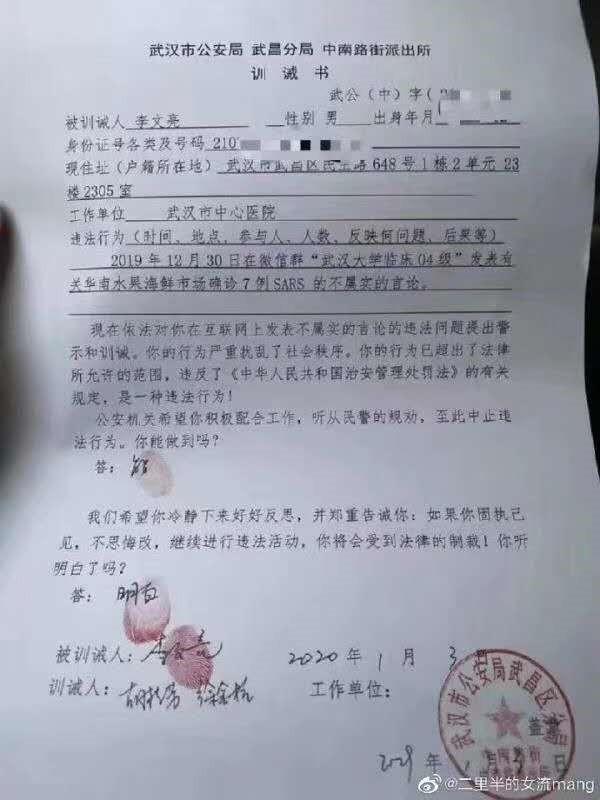 武汉市公安局 武昌分局 中南路街派出所
训 诫 书
武公（中）字（
被训诫人 李文亮 性别 男 出身年月
身份证号各类及号码 210
现住址（户籍所在地） 武汉市武昌区民主路 648 号 1 栋 2 单元 23
楼 2305 室
工作单位 武汉市中心医院
违法行为（时间、地点、参与人、人数、反映何问题、后果等）
2019 年 12 月 30 日在微信群“武汉大学临床 04 级”发表有
关华南水果海鲜市场确诊 7 例 SARS 的不属实的言论。
现在依法对你在互联网上发表不属实的言论的违法问题提出警
示和训诫。你的行为严重扰乱了社会秩序。你的行为已超出了法律
所允许的范围，违反了《中华人民共和国治安管理处罚法》的有关
规定，是一种违法行为！
公安机关希望你积极配合工作，听从民警的规劝，至此中止违
法行为。你能做到吗？
答： 能
我们希望你冷静下来好好反思，并郑重告诫你：如果你固执己
见，不思悔改，继续进行违法活动，你将会受到法律的制裁！你听
明白了吗？
答： 明白
被训诫人： 李文亮 2020 年 1 月 3 日
训诫人： 工作单位：
武汉市公安局武昌区分局
盖章
年 1 月 3 日
@二里半的女流mang